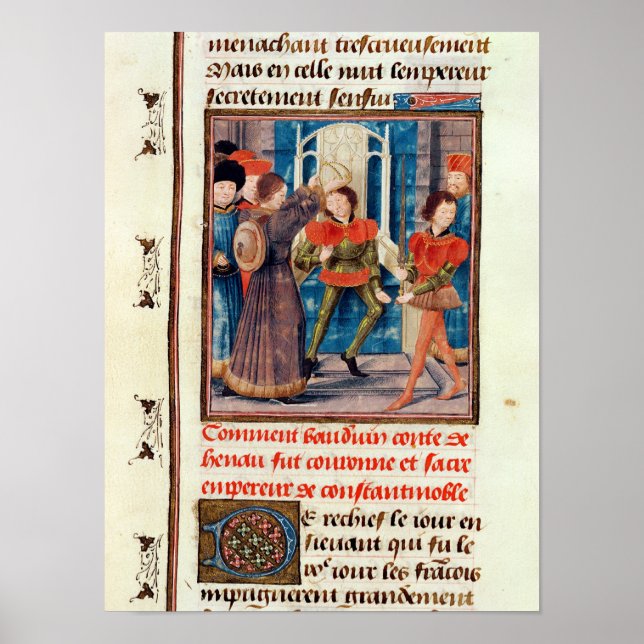 menachant trescrueusement
Mais en celle nuit lempereur
secretement senfui
Comment bauduin conte de
henau fut couronne et sacre
empereur de constantinoble
De rechief le iour en
sieuant qui fu le
vᵉ iour les francois
impugnerent grandement